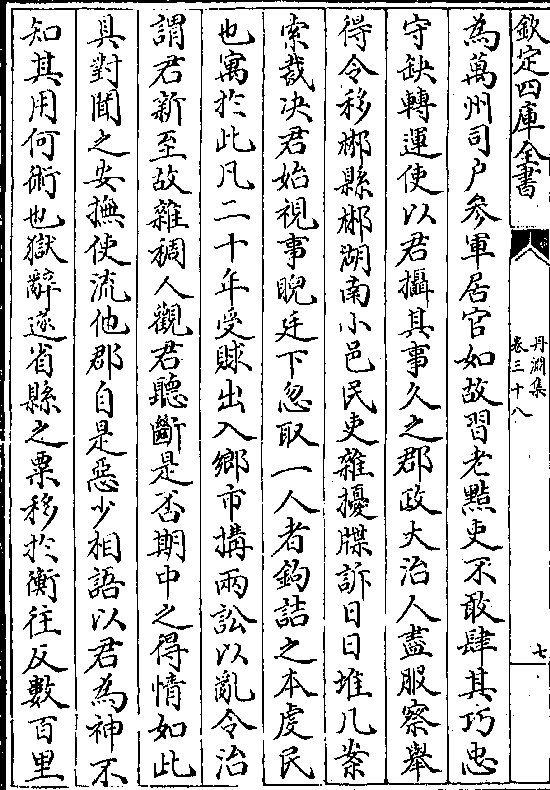 欽定四庫全書
丹淵集
卷三十八
七
為萬州司户參軍居官如故習老黠吏不敢肆其巧忠
守缺轉運使以君攝其事久之郡政大治人盡服察舉
得令移郴縣郴湖南小邑民吏雜擾牒訴日日堆几案
索裁决君始視事睨廷下忽取一人者鈎詰之本䖍民
也寓於此凡二十年受賕出入鄉市搆兩訟以亂令治
謂君新至故雜稠人觀君聽斷是否期中之得情如此
具對聞之安撫使流他郡自是惡少相語以君為神不
知其用何術也獄辭遂省縣之粟移於衡往反數百里